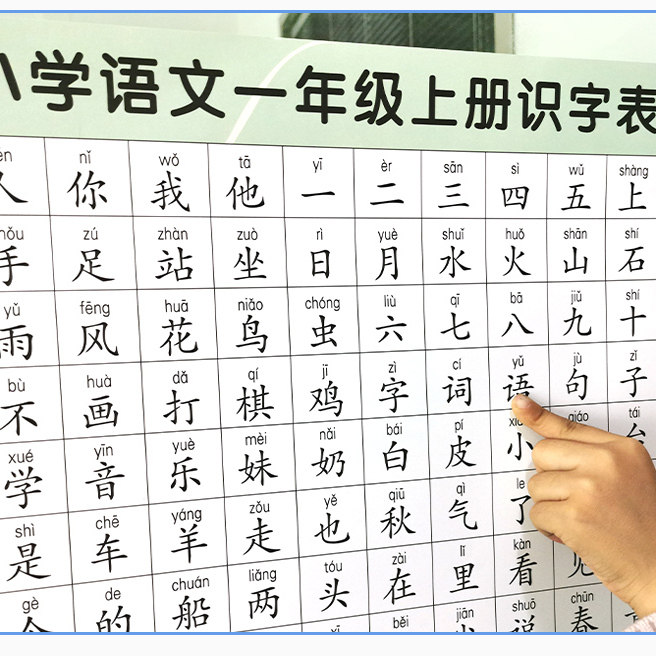 小学语文一年级上册识字表
nǐ wǒ tā yī èr sān sì wǔ shàng
人 你 我 他 一 二 三 四 五 上
zú zhàn zuò rì yuè shuǐ huǒ shān shí
手 足 站 坐 日 月 水 火 山 石
yǔ fēng huā niǎo chóng liù qī bā jiǔ shí
雨 风 花 鸟 虫 六 七 八 九 十
bù huà dǎ qí jī zì cí yǔ jù zǐ
不 画 打 棋 鸡 字 词 语 句 子
xué yīn yuè mèi nǎi bái pí tái
学 音 乐 妹 奶 白 皮 小
shì chē yáng zǒu yě qiū qì le
是 车 羊 走 也 秋 气 了
gè de chuán liǎng tóu zài lǐ kàn
个 的 船 两 头 在 里 看 见
yī běi jiān shuō chūn
说 春